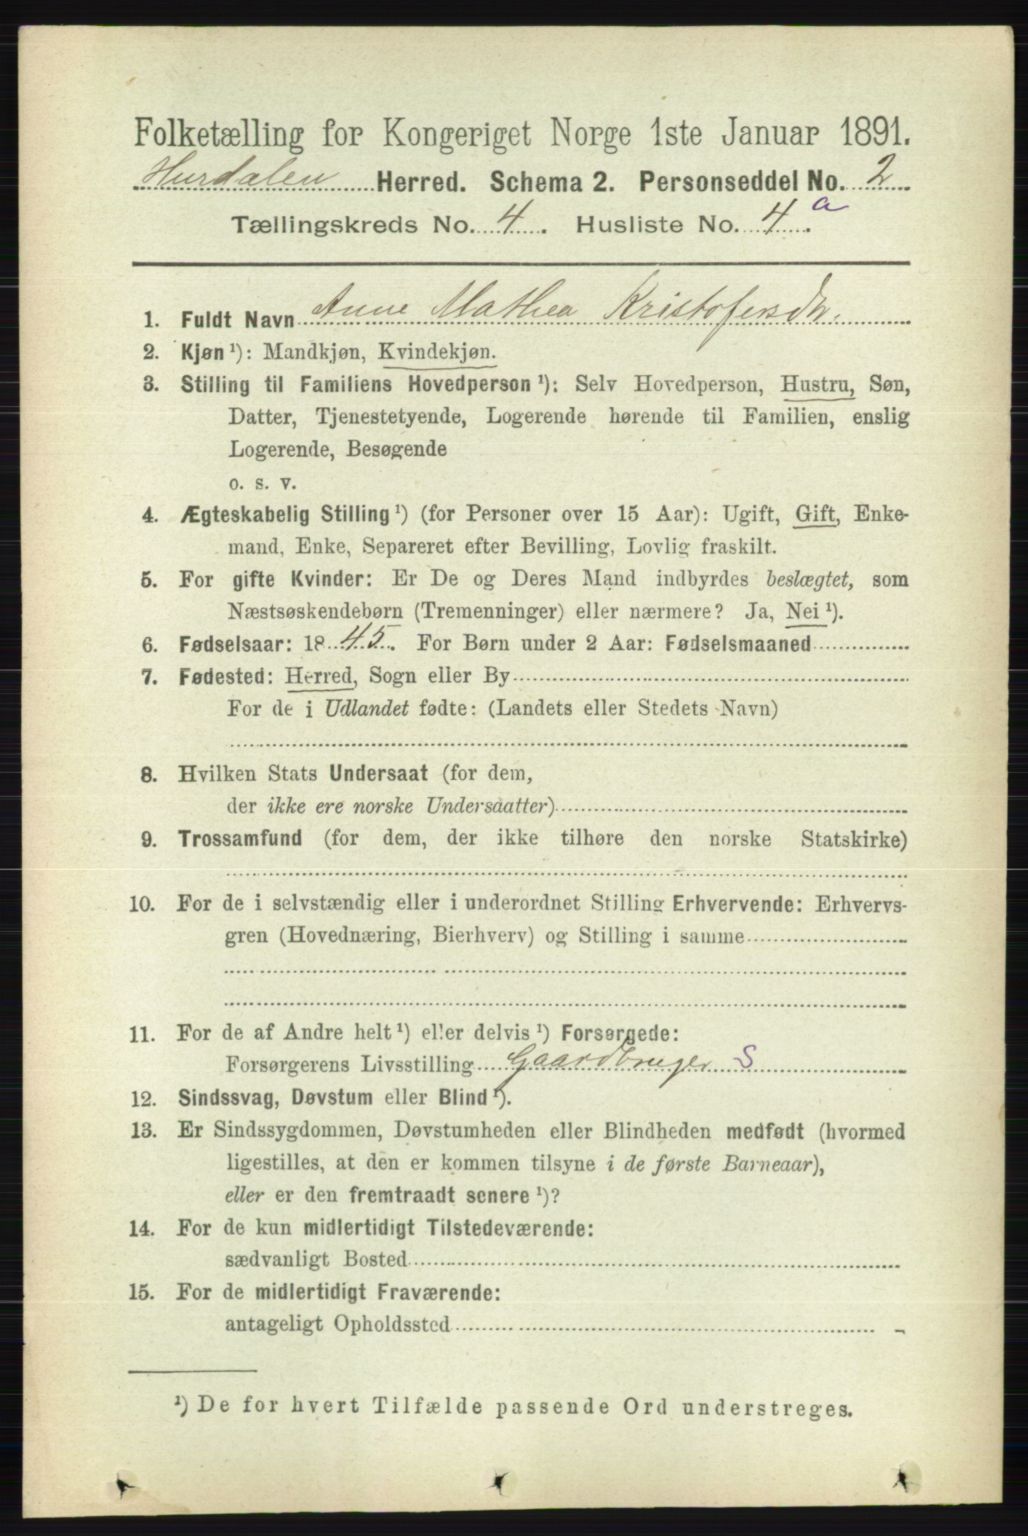 Folketælling for Kongeriget Norge 1ste Januar 1891.
Hurdalen Herred. Schema 2. Personseddel No. 2
Tællingskreds No. 4. Husliste No. 4 a.
1. Fuldt Navn Anne Mathea Kristofersdtr.
2. Kjøn ¹): Mandkjøn, Kvindekjøn.
3. Stilling til Familiens Hovedperson ¹): Selv Hovedperson, Hustru, Søn,
Datter, Tjenestetyende, Logerende hørende til Familien, enslig
Logerende, Besøgende
o. s. v.
4. Ægteskabelig Stilling ¹) (for Personer over 15 Aar): Ugift, Gift, Enke-
mand, Enke, Separeret efter Bevilling, Lovlig fraskilt.
5. For gifte Kvinder: Er De og Deres Mand indbyrdes beslægtet, som
Næstsøskendebørn (Tremenninger) eller nærmere? Ja, Nei ¹).
6. Fødselsaar: 1845. For Børn under 2 Aar: Fødselsmaaned
7. Fødested: Herred, Sogn eller By
For de i Udlandet fødte: (Landets eller Stedets Navn)
8. Hvilken Stats Undersaat (for dem,
der ikke ere norske Undersaatter)
9. Trossamfund (for dem, der ikke tilhøre den norske Statskirke)
10. For de i selvstændig eller i underordnet Stilling Erhvervende: Erhvervs-
gren (Hovednæring, Bierhverv) og Stilling i samme
11. For de af Andre helt ¹) eller delvis ¹) Forsørgede:
Forsørgerens Livsstilling Gaardbruger S
12. Sindssvag, Døvstum eller Blind ¹).
13. Er Sindssygdommen, Døvstumheden eller Blindheden medfødt (hvormed
ligestilles, at den er kommen tilsyne i de første Barneaar),
eller er den fremtraadt senere ¹)?
14. For de kun midlertidigt Tilstedeværende:
sædvanligt Bosted
15. For de midlertidigt Fraværende:
antageligt Opholdssted
¹) De for hvert Tilfælde passende Ord understreges.